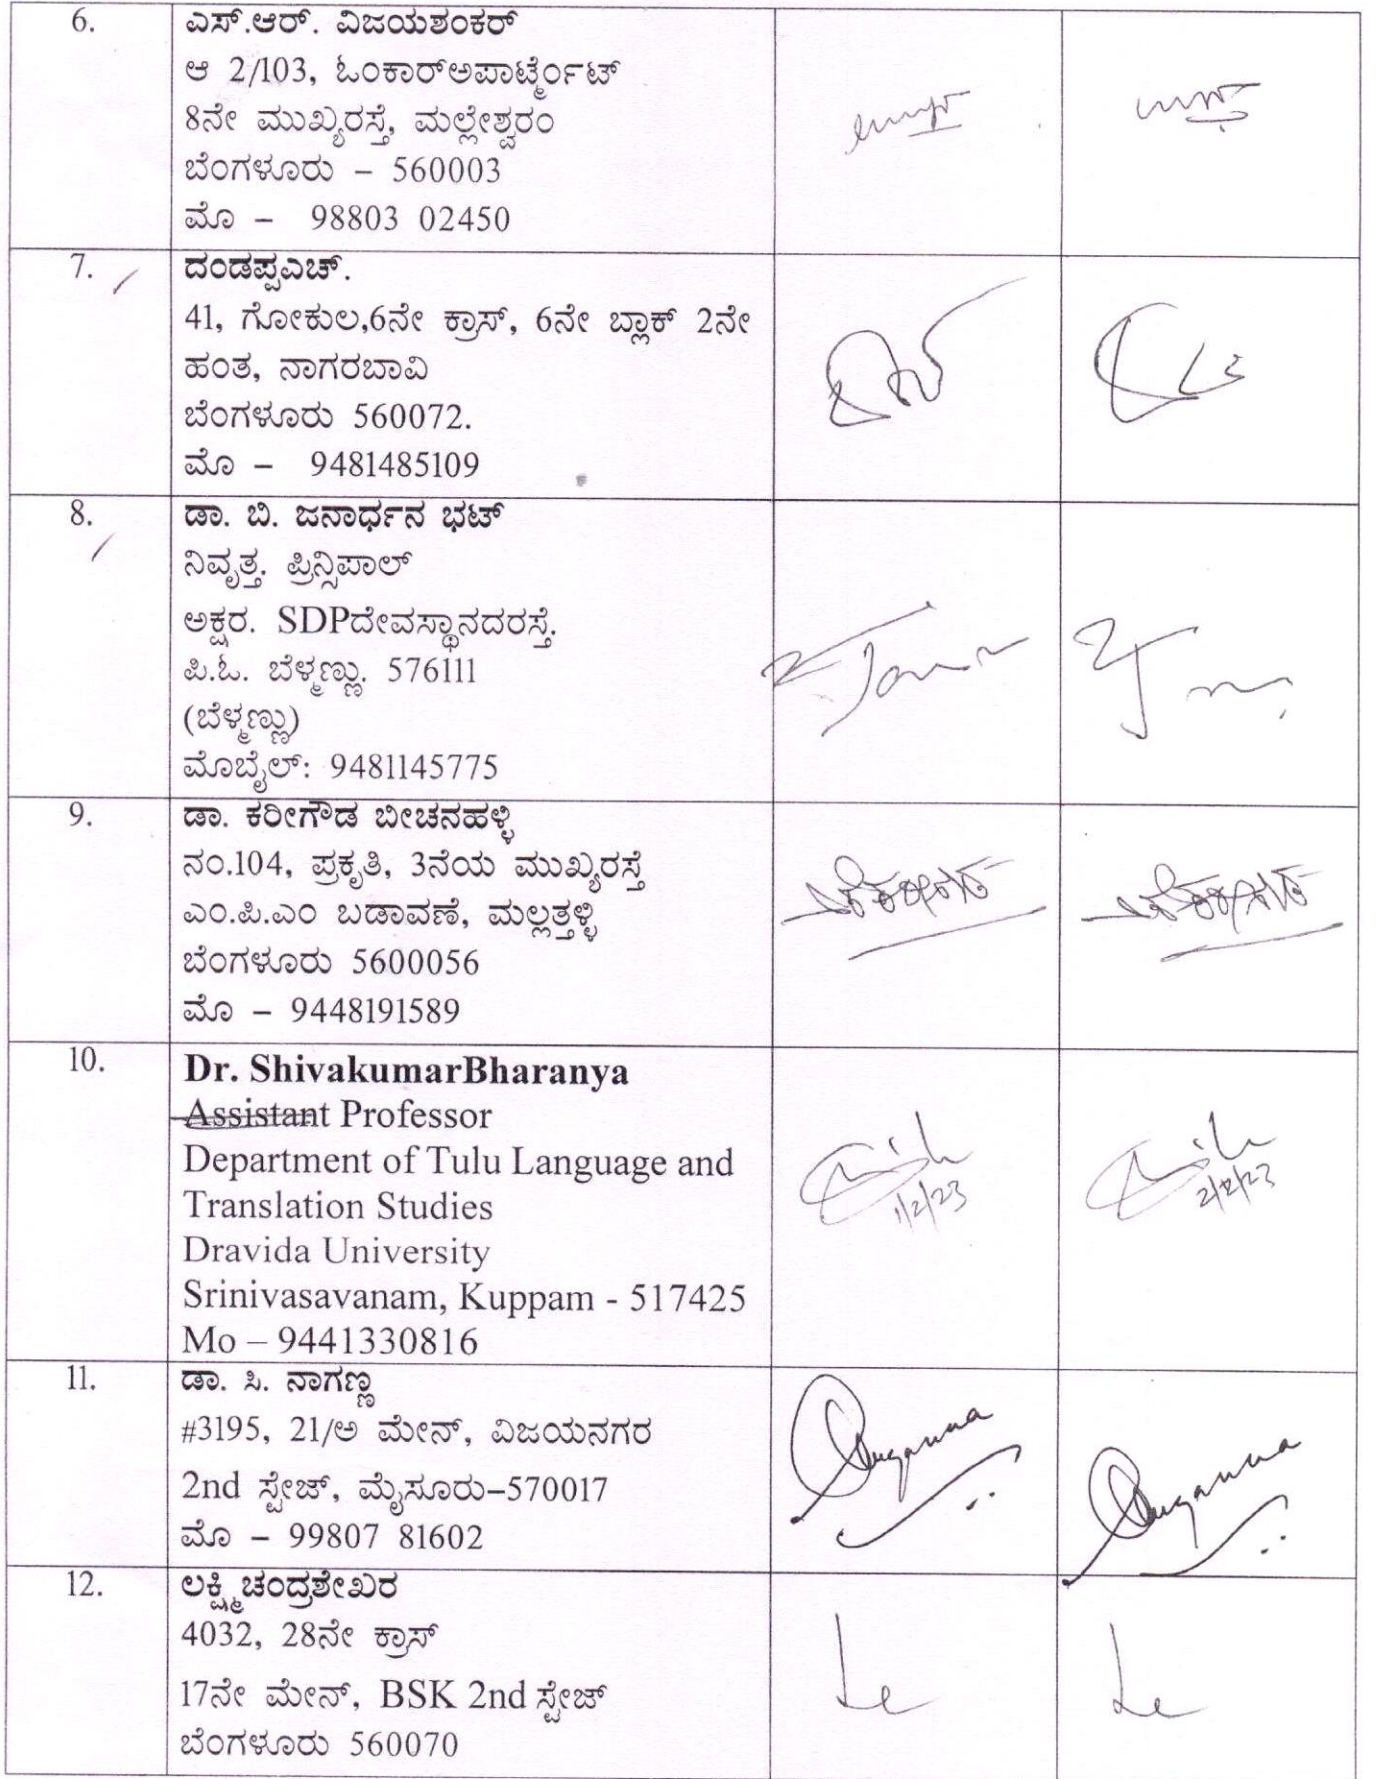 6.
ಎಸ್.ಆರ್. ವಿಜಯಶಂಕರ್
ಆ 2/103, ಓಂಕಾರ್‌ಅಪಾರ್ಟ್ಮೆಂಟ್
8ನೇ ಮುಖ್ಯರಸ್ತೆ, ಮಲ್ಲೇಶ್ವರಂ
ಬೆಂಗಳೂರು – 560003
ಮೊ – 98803 02450
7.
ದಂಡಪ್ಪಎಚ್.
41, ಗೋಕುಲ,6ನೇ ಕ್ರಾಸ್, 6ನೇ ಬ್ಲಾಕ್ 2ನೇ
ಹಂತ, ನಾಗರಬಾವಿ
ಬೆಂಗಳೂರು 560072.
ಮೊ – 9481485109
8.
ಡಾ. ಬಿ. ಜನಾರ್ಧನ ಭಟ್
ನಿವೃತ್ತ. ಪ್ರಿನ್ಸಿಪಾಲ್
ಅಕ್ಷರ. SDPದೇವಸ್ಥಾನದರಸ್ತೆ.
ಪಿ.ಓ. ಬೆಳ್ಮಣ್ಣು. 576111
(ಬೆಳ್ಮಣ್ಣು)
ಮೊಬೈಲ್: 9481145775
9.
ಡಾ. ಕರೀಗೌಡ ಬೀಚನಹಳ್ಳಿ
ನಂ.104, ಪ್ರಕೃತಿ, 3ನೆಯ ಮುಖ್ಯರಸ್ತೆ
ಎಂ.ಪಿ.ಎಂ ಬಡಾವಣೆ, ಮಲ್ಲತ್ತಳ್ಳಿ
ಬೆಂಗಳೂರು 5600056
ಮೊ – 9448191589
10.
Dr. ShivakumarBharanya
Assistant Professor
Department of Tulu Language and
Translation Studies
Dravida University
Srinivasavanam, Kuppam - 517425
Mo – 9441330816
1/2/23
2/2/23
11.
ಡಾ. ಸಿ. ನಾಗಣ್ಣ
#3195, 21/ಅ ಮೇನ್, ವಿಜಯನಗರ
2nd ಸ್ಟೇಜ್, ಮೈಸೂರು–570017
ಮೊ – 99807 81602
12.
ಲಕ್ಷ್ಮಿಚಂದ್ರಶೇಖರ
4032, 28ನೇ ಕ್ರಾಸ್
17ನೇ ಮೇನ್, BSK 2nd ಸ್ಟೇಜ್
ಬೆಂಗಳೂರು 560070